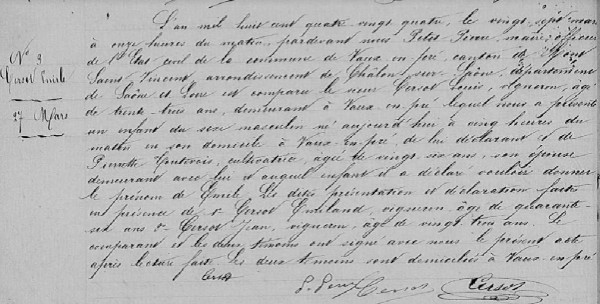 N° 9
Cersot Emile
27 Mars
L'an mil huit cent quatre vingt quatre, le vingt sept mars
à onze heures du matin, pardevant nous Petit Pierre, maire, officier
de l'Etat civil de la commune de Vaux en pré, canton de Mont
Saint Vincent, arrondissement de Chalon sur Saône, département
de Saône et Loire est comparu le sieur Cersot Louis, vigneron, âgé
de trente trois ans, demeurant à Vaux en pré, lequel nous a présenté
un enfant du sexe masculin né aujourd'hui à cinq heures du
matin en son domicile à Vaux-en-pré, de lui déclarant et de
Pierrette, cultivatrice, âgée de vingt six ans, son épouse
demeurant avec lui et auquel enfant il a déclaré vouloir donner
le prénom de Emile. Les dites présentation et déclaration faites
en présence de 1° Cersot Emiland, vigneron âgé de quarante-
six ans 2° Cersot Jean, vigneron, âgé de vingt trois ans. Le
comparant et les deux témoins ont signé avec nous le présent acte
après lecture faite. Les deux témoins sont domiciliés à Vaux-en-pré
Cersot
Cersot
Cersot